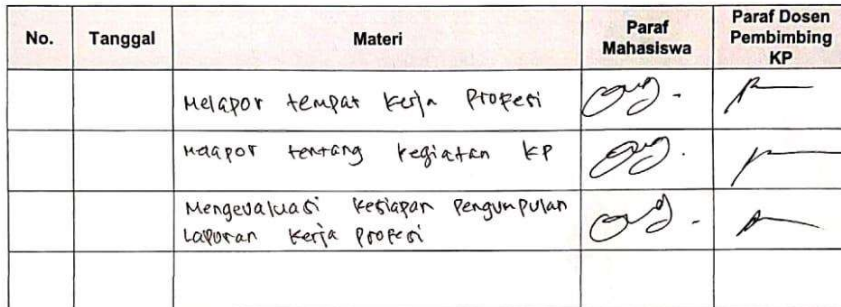 No. Tanggal Materi Paraf Mahasiswa Paraf Dosen Pembimbing KP
Melapor tempat Kerja Profesi
Melapor tentang kegiatan KP
Mengevaluasi Kesiapan Pengumpulan
Laporan Kerja Profesi